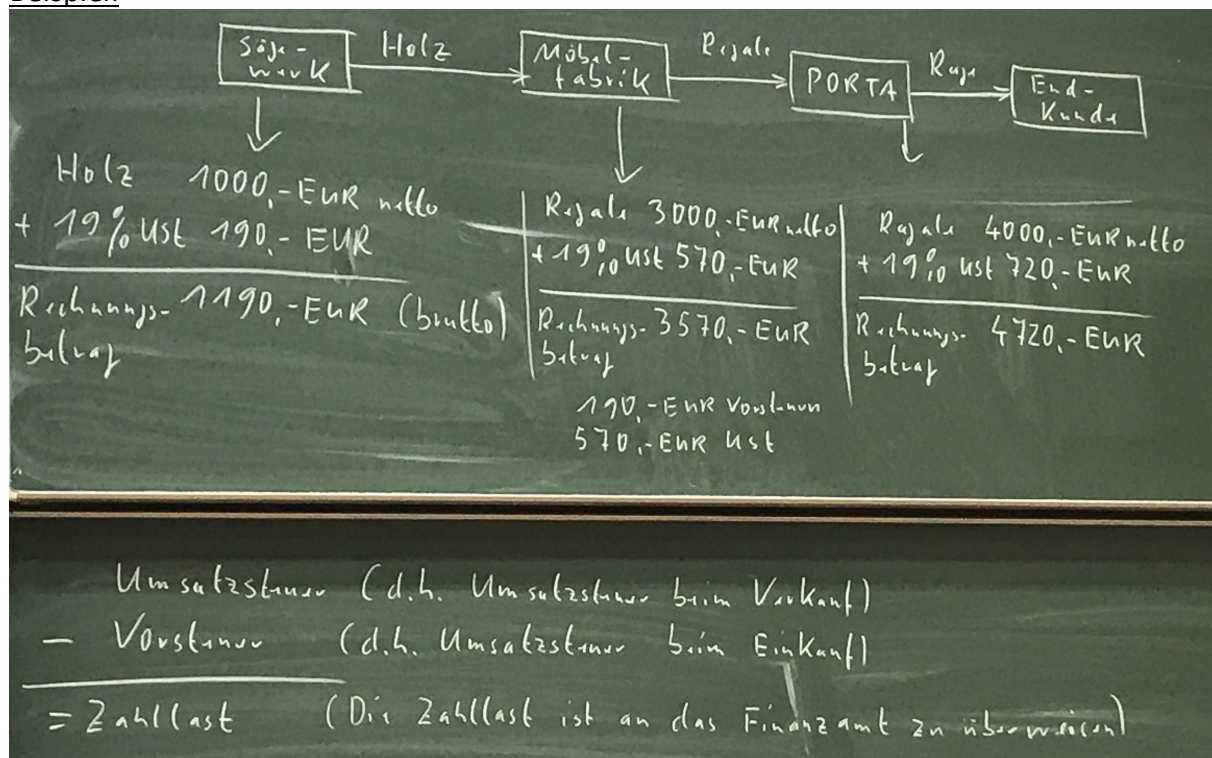 Beispiel:
Säge-
werk
Holz
Möbel-
fabrik
Regale
PORTA
Rega
End-
Kunde
Holz 1000,- EUR netto
+ 19% USt 190,- EUR
Rechnungs- 1190,- EUR (brutto)
betrag
Regale 3000,- EUR netto
+ 19% USt 570,- EUR
Rechnungs- 3570,- EUR
betrag
190,- EUR Vorsteuer
570,- EUR USt
Regale 4000,- EUR netto
+ 19% USt 720,- EUR
Rechnungs- 4720,- EUR
betrag
Umsatzsteuer (d.h. Umsatzsteuer beim Verkauf)
- Vorsteuer (d.h. Umsatzsteuer beim Einkauf)
= Zahllast (Die Zahllast ist an das Finanzamt zu überweisen)